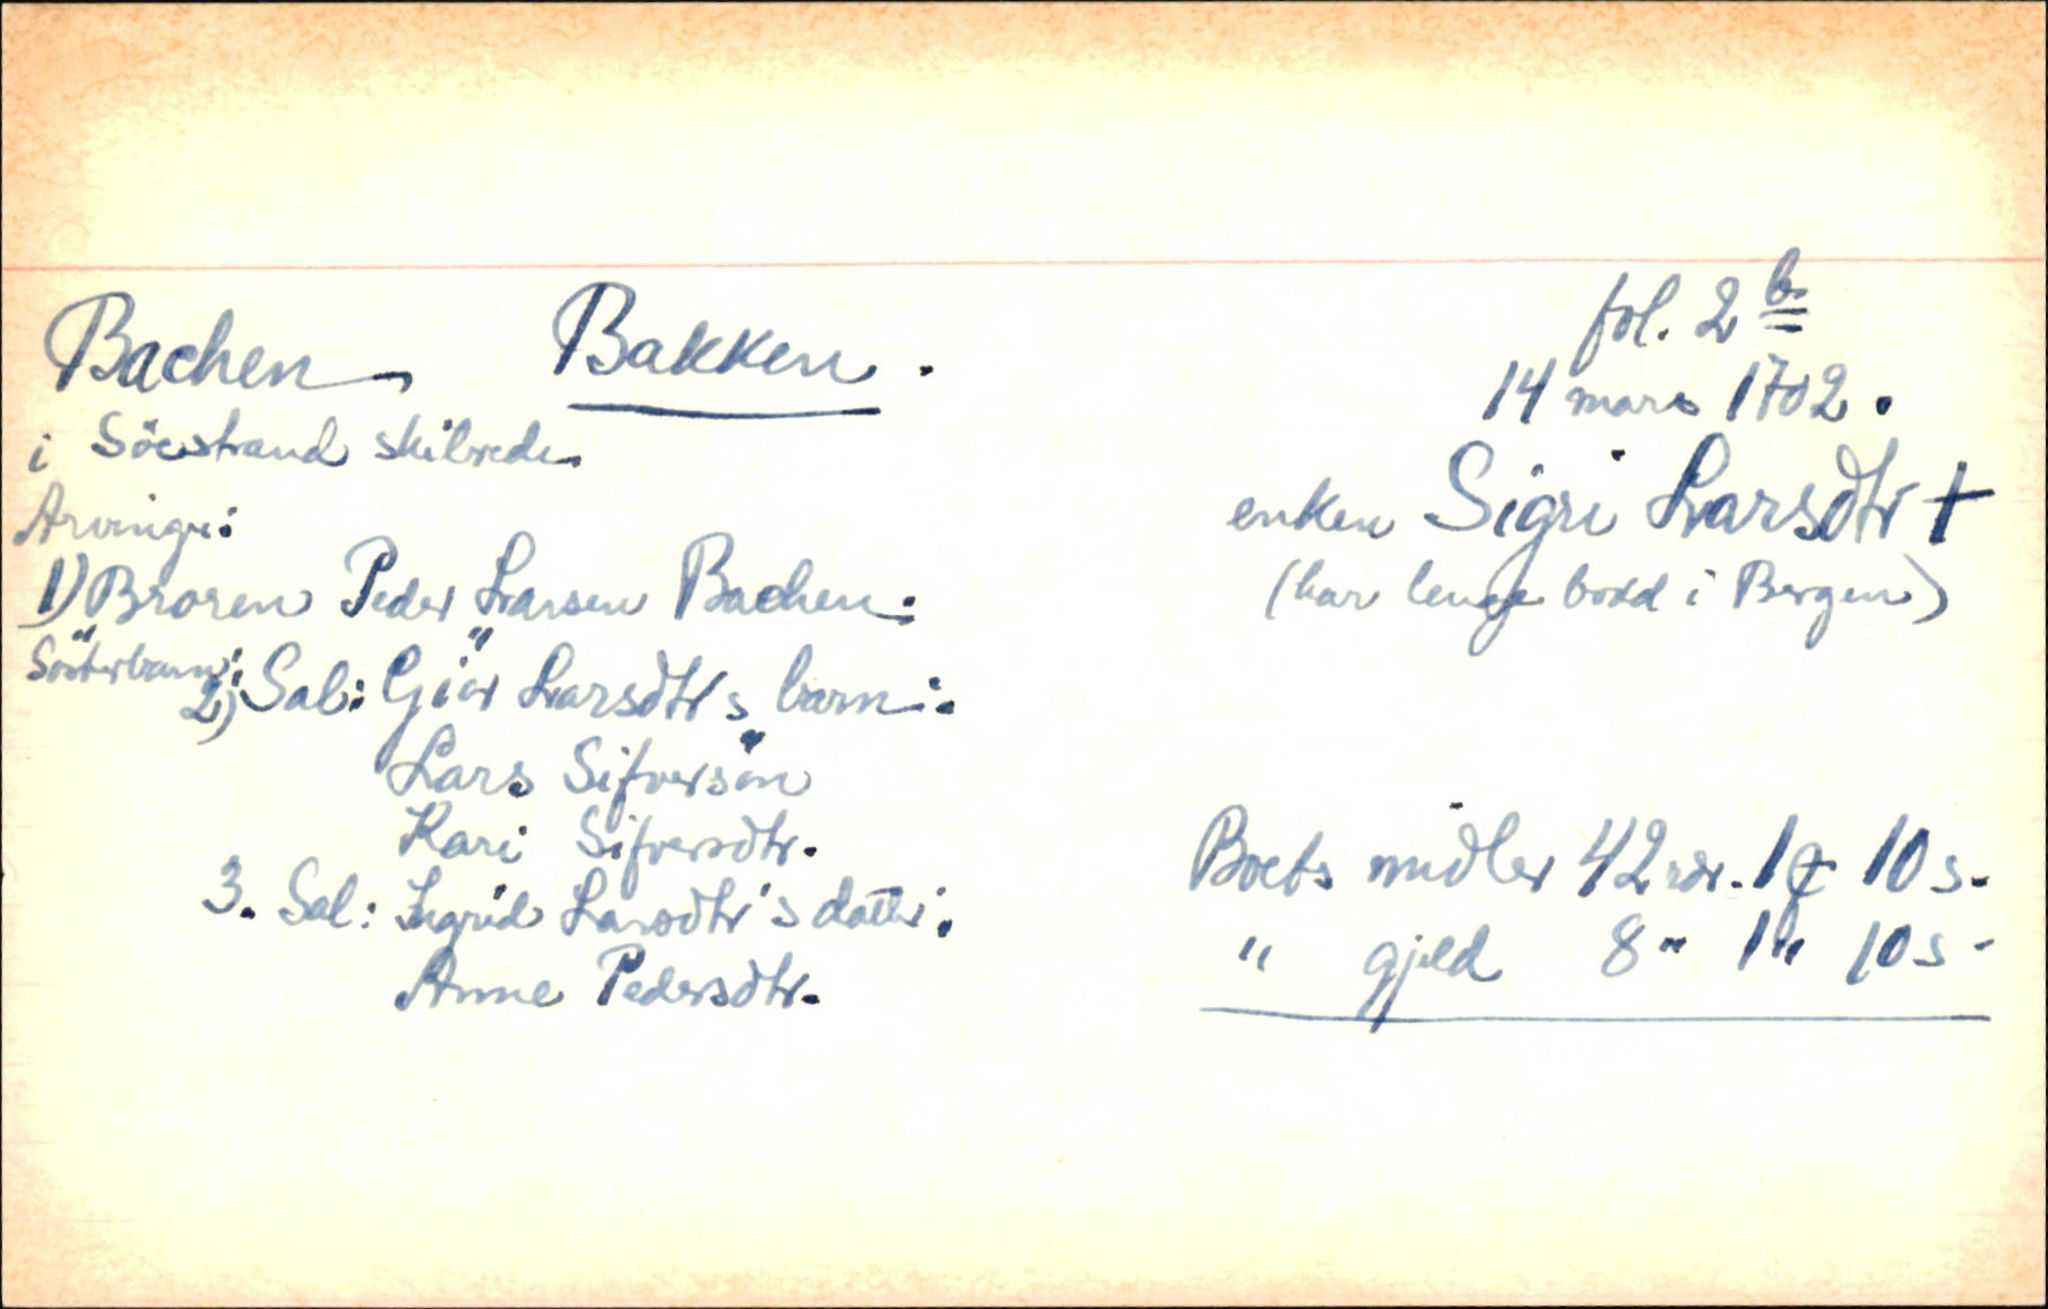 Bachen Bakken.
i Söestrand skibrede
Arvinger:
1) Broren Peder Larsen Bachen:
Sösterbarn:
2) Sal: Giör Larsdtr's barn:
Lars Sifversön
Kari Sifversdtr.
3. Sal: Ingrid Larsdtr's datter:
Anne Pedersdtr.
fol. 2 b
14 mars 1702.
enken Sigri Larsdtr †
(har lenge bodd i Bergen)
Boets midler 42 rdr. 1 ₰ 10 s.
" gjeld 8 " 1 " 10 s -